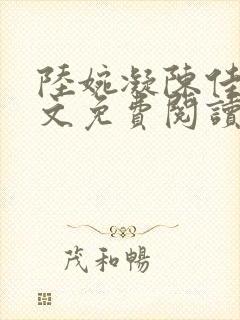 陸婉凝陳佳
文免費閱讀
茂和暢